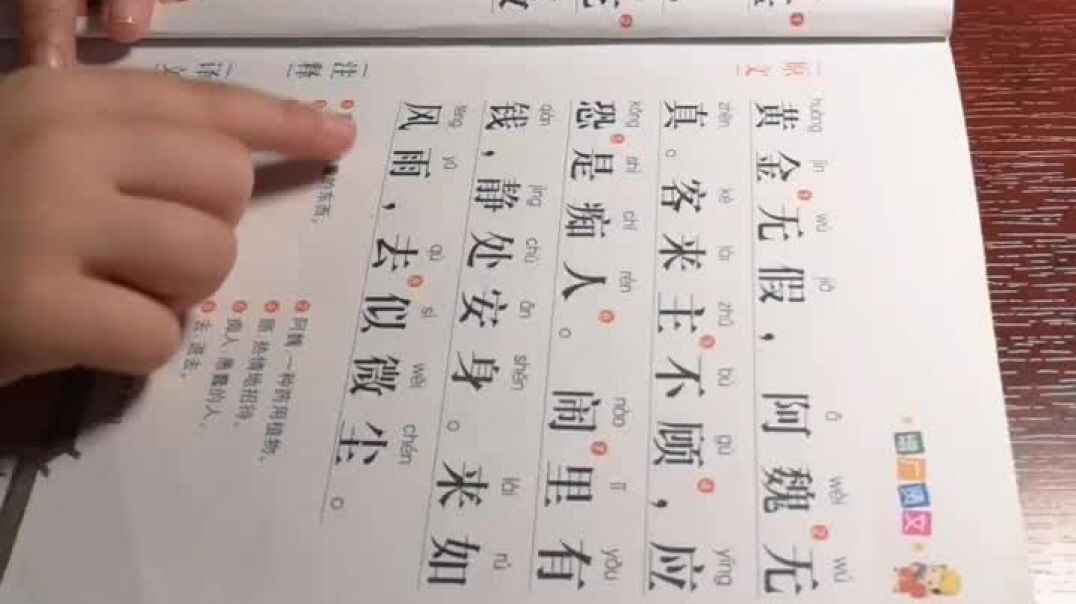 增广贤文
原文
huáng jīn wú jiǎ ā wèi wú
黄金无假，阿魏无
zhēn kè lái zhǔ bú gù yīng
真。客来主不顾，应
kǒng shì chī rén nào lǐ yǒu
恐是痴人。闹里有
qián jìng chù ān shēn lái rú
钱，静处安身。来如
fēng yǔ qù sì wēi chén
风雨，去似微尘。
注释
的东西。
阿魏：一种药用植物。
顾：热情地招待。
痴人：愚蠢的人。
去：退去。
译文